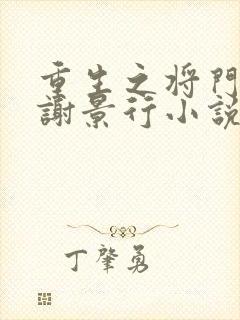 重生之将門
謝景行小説
丁肇勇